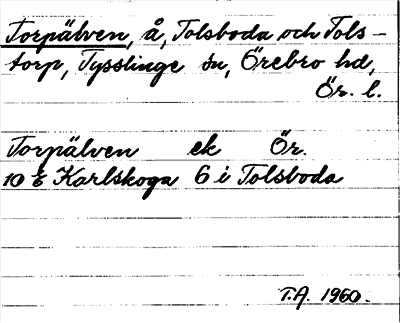 Torpälven, å, Tolsboda och Tols-
torp, Tysslinge sn, Örebro hd,
Ör. l.
Torpälven ek Ör.
10 6 Karlskoga 6 i Tolsboda
T.A. 1960.